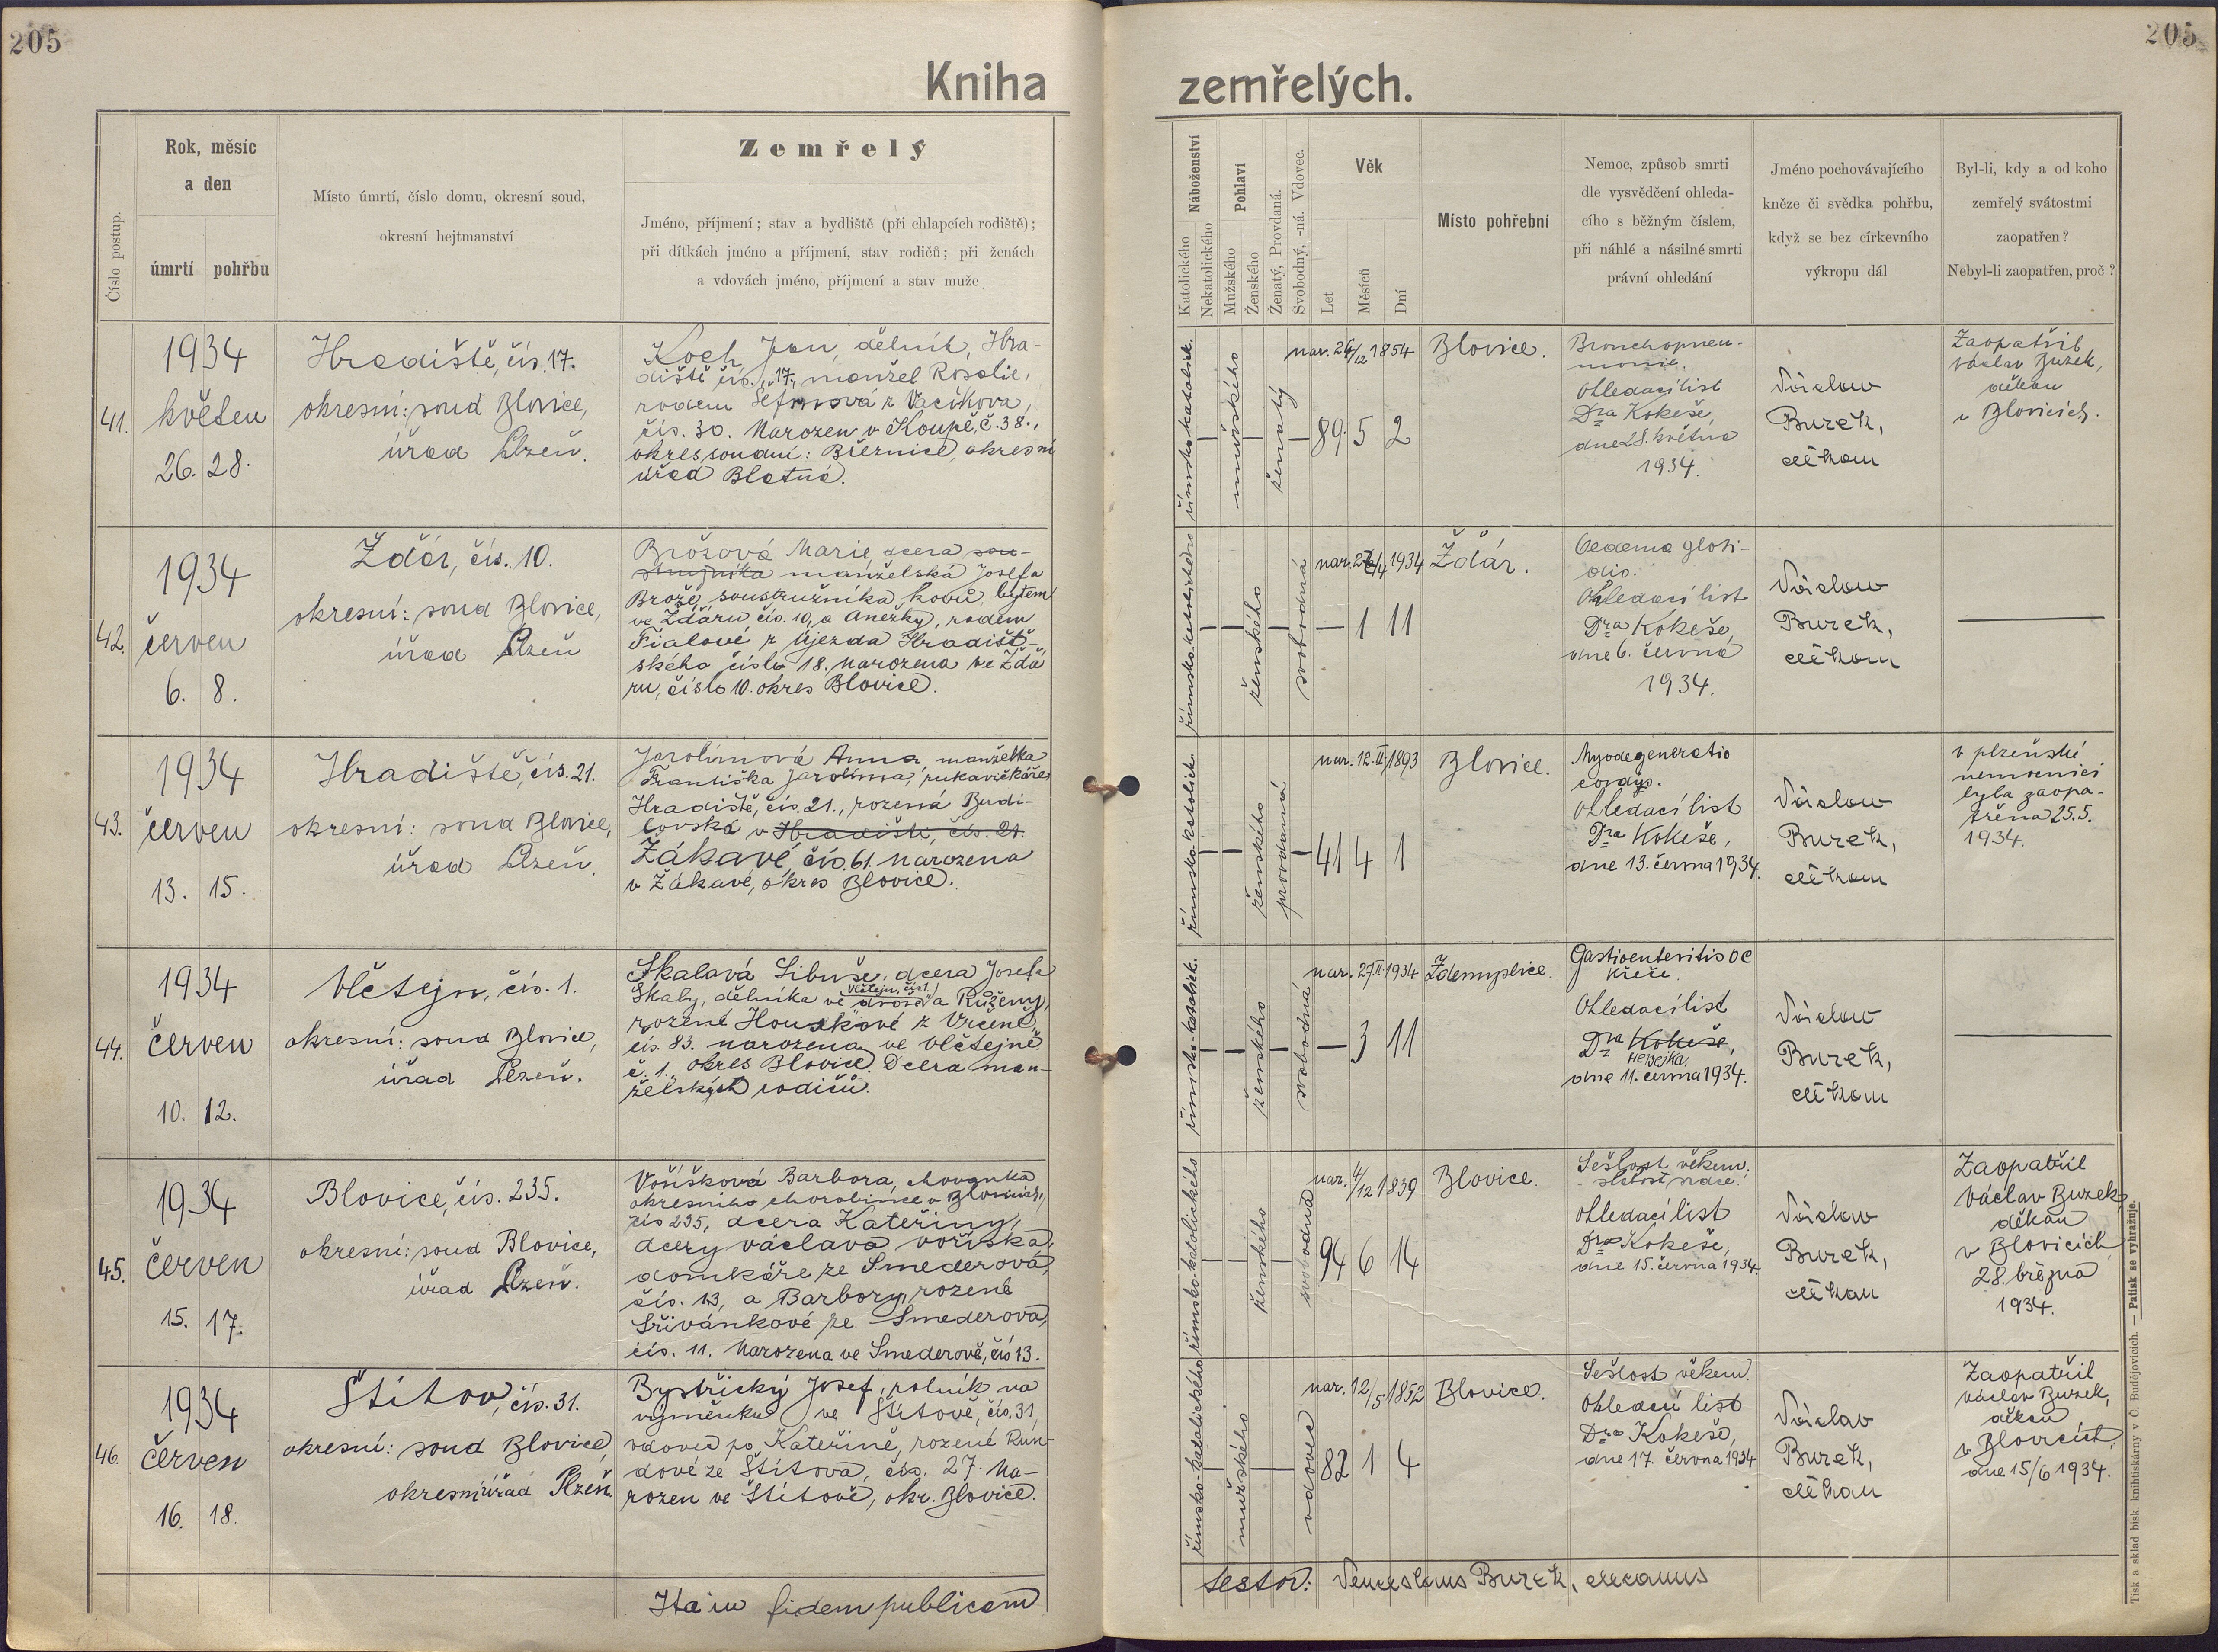 205
205
Kniha zemřelých.
Číslo postup.
Rok, měsíc
a den
úmrtí pohřbu
Místo úmrtí, číslo domu, okresní soud,
okresní hejtmanství
Zemřelý
Jméno, příjmení; stav a bydliště (při chlapcích rodiště);
při dítkách jméno a příjmení, stav rodičů; při ženách
a vdovách jméno, příjmení a stav muže
Náboženství
Katolického
Nekatolického
Pohlaví
Mužského
Ženského
Ženatý, Provdaná.
Svobodný, -ná. Vdovec.
Věk
Let
Měsíců
Dní
Místo pohřební
Nemoc, způsob smrti
dle vysvědčení ohleda-
cího s běžným číslem,
při náhlé a násilné smrti
právní ohledání
Jméno pochovávajícího
kněze či svědka pohřbu,
když se bez církevního
výkropu dál
Byl-li, kdy a od koho
zemřelý svátostmi
zaopatřen?
Nebyl-li zaopatřen, proč?
41.
1934
květen
26. 28.
Hradiště, čís. 17.
okresní: soud Blovice,
úřad Plzeň.
Koch Jan, dělník, Hra-
diště čís. 17, manžel Rosalie,
rodem z Vacíkova,
čís. 30. Narozen v Koupě, č. 38.,
okres soudní: Březnice, okresní
úřad Blatná.
římsko-katolick.
mužského
ženatý
nar. 24/12 1854
89 5 2
Blovice.
Bronchopneu-
monie.
Ohledací list
Dra Kokeše,
dne 28. května
1934.
Václav
Buzek,
děkan
Zaopatřil
Václav Buzek,
děkan
v Blovicích.
42.
1934
červen
6. 8.
Ždár, čís. 10.
okresní: soud Blovice,
úřad Plzeň
Brožová Marie, dcera sou-
stružníka manželská Josefa
Brože, soustružníka kovů, bytem
ve Ždáru čís. 10, a Anežky, rodem
Fialové z Újezda Hradišť-
ského číslo 18. Narozena ve Ždá
ru, číslo 10. okres Blovice.
římsko-katolického
ženského
svobodná
nar. 26/4 1934
1 11
Ždár.
Oedema gloti-
dis.
Ohledací list
Dra Kokeše,
dne 6. června
1934.
Václav
Buzek,
děkan
43.
1934
červen
13. 15.
Hradiště, čís. 21.
okresní: soud Blovice,
úřad Plzeň.
Jarolímová Anna, manželka
Františka Jarolíma, rukavičkáře
Hradiště, čís. 21., rozená Budi-
lovská v Hradišti, čís. 21.
Žákavé, čís. 61. Narozena
v Žákavé, okres Blovice.
římsko-katolick.
ženského
provdaná
nar. 12.II.1893
41 4 1
Blovice.
Myodegeneratio
cordis.
Ohledací list
Dra Kokeše,
dne 13. června 1934.
Václav
Buzek,
děkan
v plzeňské
nemocnici
byla zaopa-
třena 25.5.
1934.
44.
1934
červen
10. 12.
Vlčtejn, čís. 1.
okresní: soud Blovice,
úřad Plzeň.
Skalová Libuše, dcera Josefa
Skaly, dělníka ve dvoře Vlčtejn, čís. 1. a Růženy,
rozené Houškové z Vrčeně
čís. 83. narozena ve Vlčtejně
č. 1. okres Blovice. Dcera man-
želských rodičů.
římsko-katolick.
ženského
svobodná
nar. 27.II.1934
3 11
Ždemyslice.
Gastroenteritis ac
křeče.
Ohledací list
Dra Kokeše,
dne 11. června 1934.
Václav
Buzek,
děkan
45.
1934
červen
15. 17.
Blovice, čís. 235.
okresní: soud Blovice,
úřad Plzeň.
Voříšková Barbora, chovanka
okresního chorobince v Blovicích,
čís 235, dcera Kateřiny,
dcery Václava Voříška,
domkáře ze Smederova,
čís. 13, a Barbory, rozené
Střivánkové ze Smederova,
čís. 11. Narozena ve Smederově, čís 13.
římsko-katolického
ženského
svobodná
nar. 1/12 1839
94 6 14
Blovice.
Sešlost věkem.
Ohledací list
Dra Kokeše,
dne 15. června 1934.
Václav
Buzek,
děkan
Zaopatřil
Václav Buzek,
děkan
v Blovicích
28. března
1934.
46.
1934
červen
16. 18.
Štítov, čís. 31.
okresní: soud Blovice,
okresní úřad Plzeň.
Bystřický Josef, rolník na
výměnku ve Štítově, čís. 31,
vdovec po Kateřině, rozené Run-
dové ze Štítova, čís. 27. Na-
rozen ve Štítově, okr. Blovice.
římsko-katolického
mužského
vdovec
nar. 12/5 1852
82 1 4
Blovice.
Sešlost věkem.
Ohledací list
Dra Kokeše,
dne 17. června 1934
Václav
Buzek,
děkan
Zaopatřil
Václav Buzek,
děkan
v Blovicích,
dne 15/6 1934.
Ita in fidem publicam
testor: Venceslaus Buzek, decanus
Tisk a sklad bisk. knihtiskárny v Č. Budějovicích. — Patisk se vyhražuje.